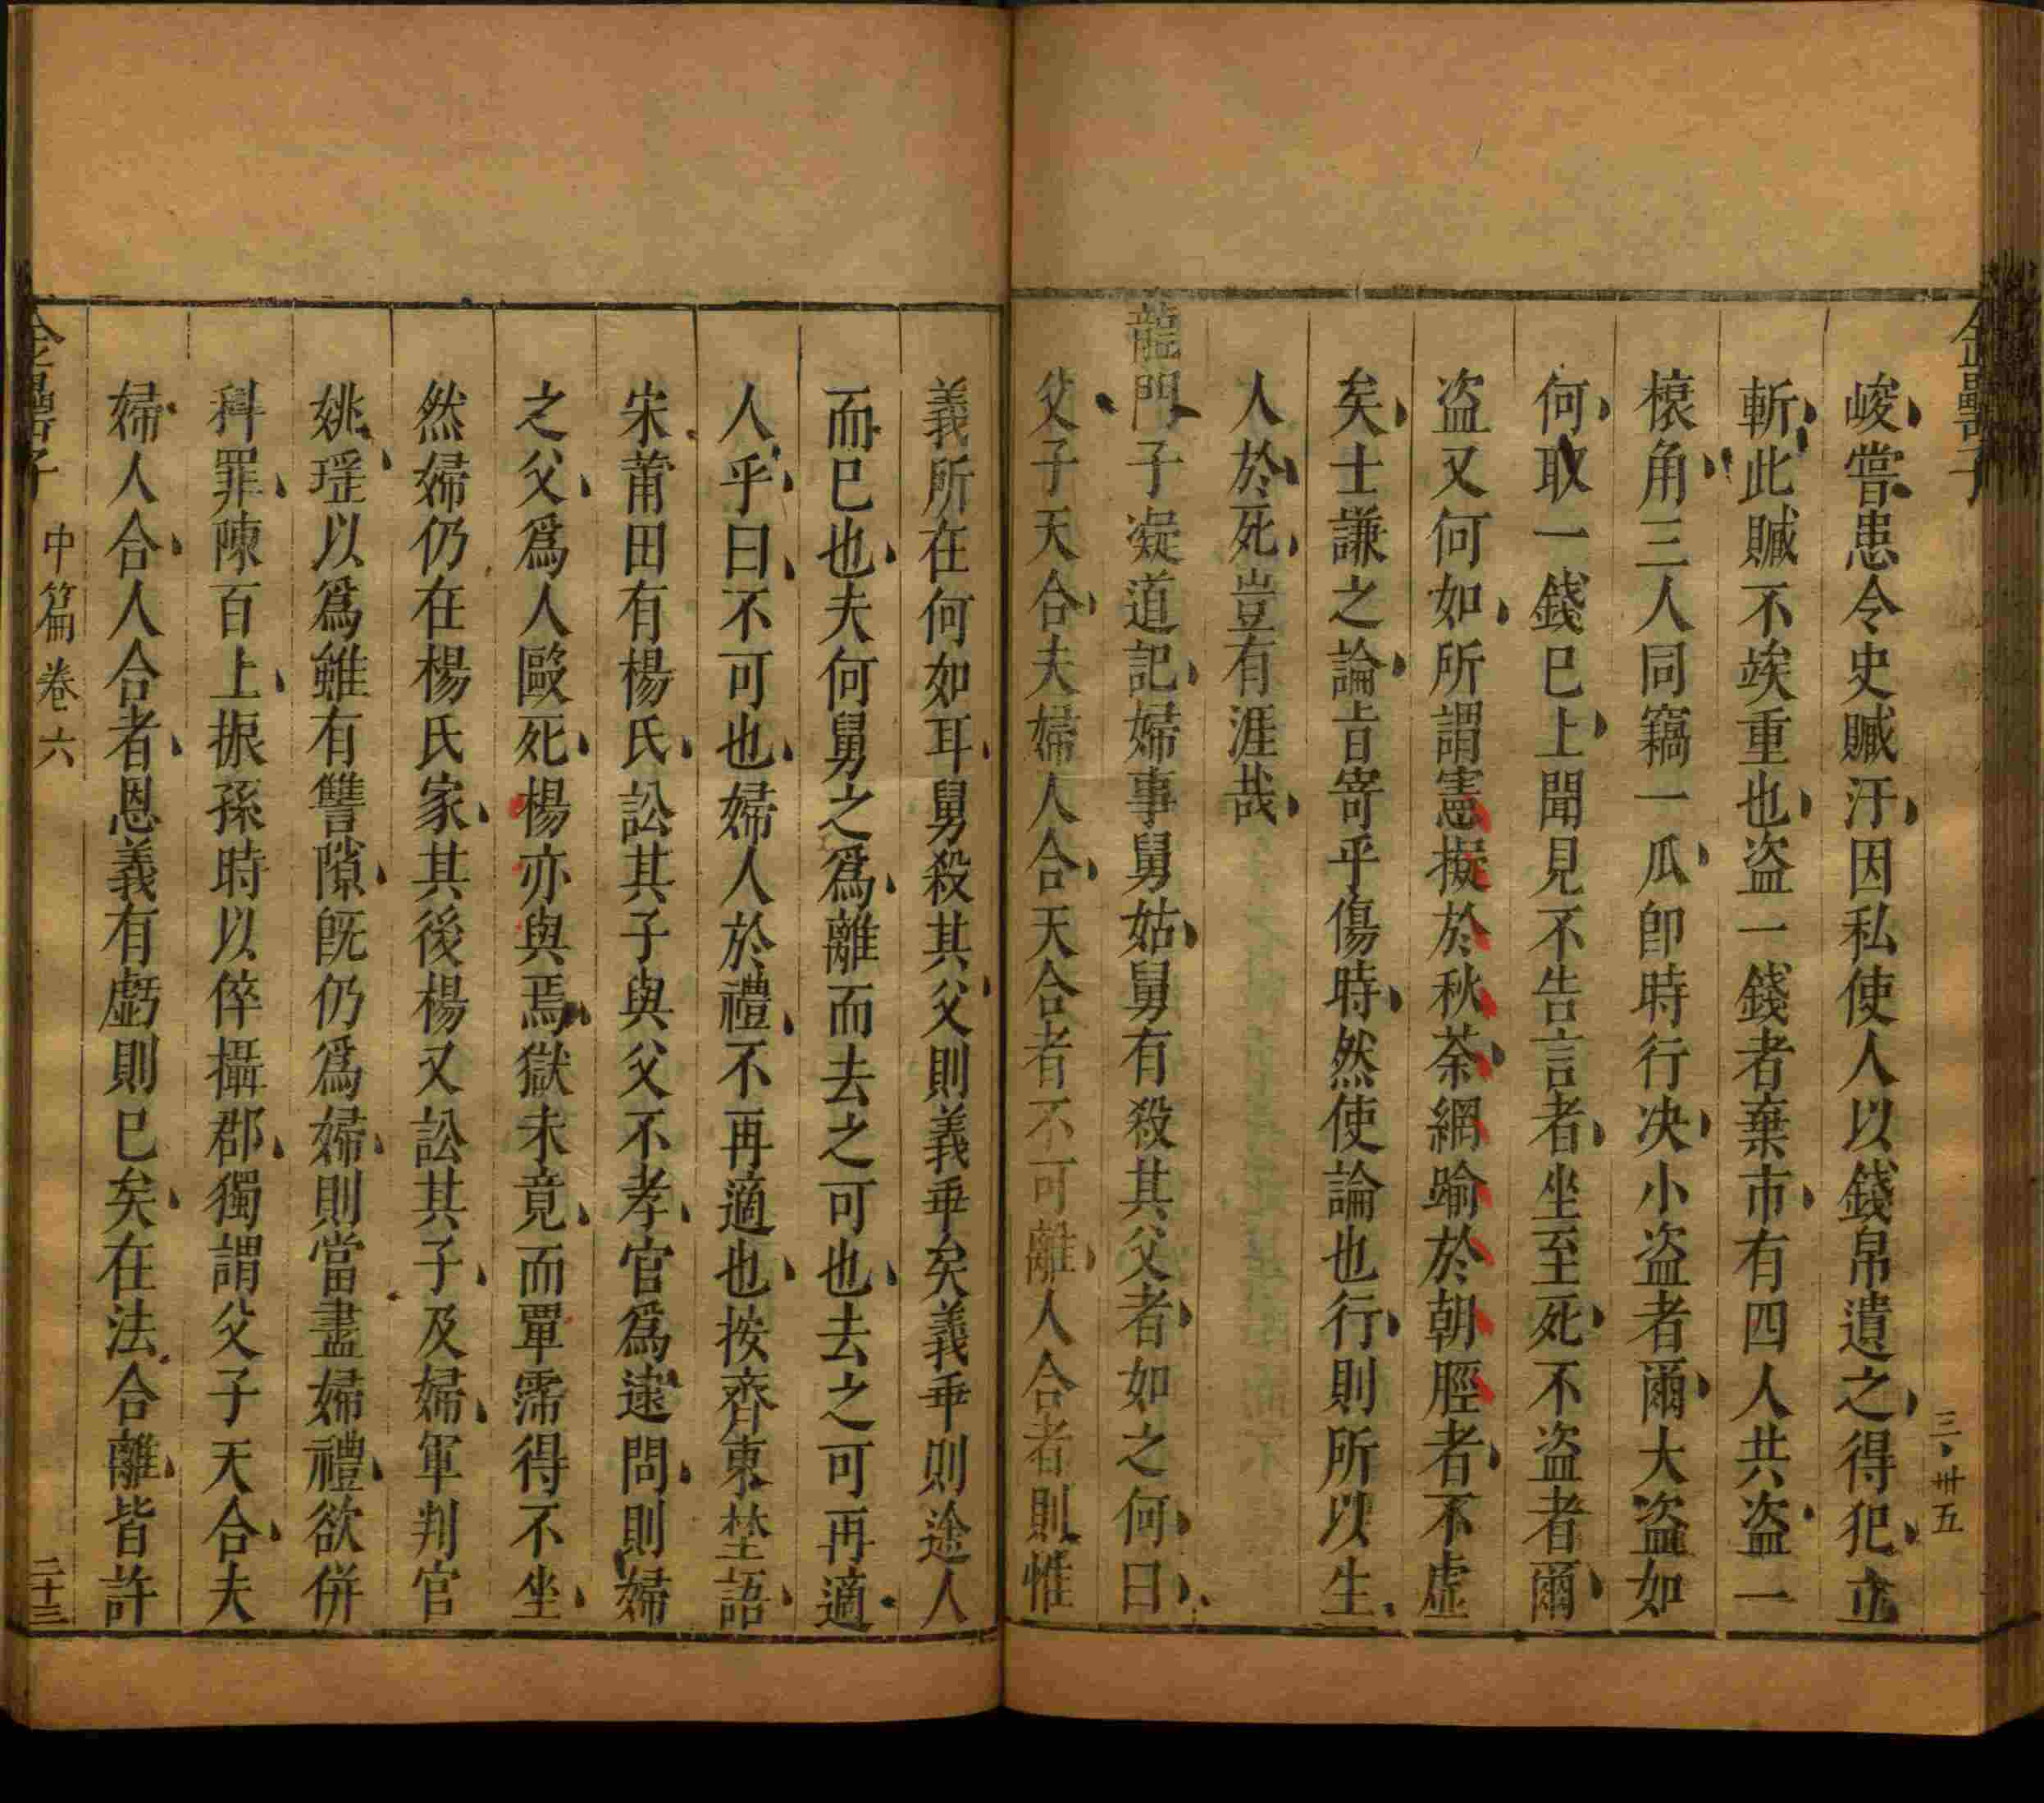 金罍子
三卅五
峻嘗患令史贓汙因私使人以錢帛遺之得犯立
斬此贓不竢重也盗一錢者棄市有四人共盗一
榱角三人同竊一瓜卽時行决小盗者爾大盗如
何取一錢巳上聞見不告言者坐至死不盗者爾
盗又何如所謂憲擬於秋荼網踰於朝脛者不虚
矣士謙之論旨寄乎傷時然使論也行則所以生
人於死豈有涯哉
龍門子凝道記婦事舅姑舅有殺其父者如之何曰
父子天合夫婦人合天合者不可離人合者則惟
義所在何如耳舅殺其父則義乖矣義乖則途人
而巳也夫何舅之爲離而去之可也去之可再適
人乎曰不可也婦人於禮不再適也按齊東埜語
宋莆田有楊氏訟其子與父不孝官爲逮問則婦
之父爲人毆死楊亦與焉獄未竟而覃霈得不坐
然婦仍在楊氏家其後楊又訟其子及婦軍判官
姚珤以爲雖有讐隙旣仍爲婦則當盡婦禮欲併
科罪陳百上振孫時以倅攝郡獨謂父子天合夫
婦人合人合者恩義有虧則巳矣在法合離皆許
金罍子
中篇卷六
二十三